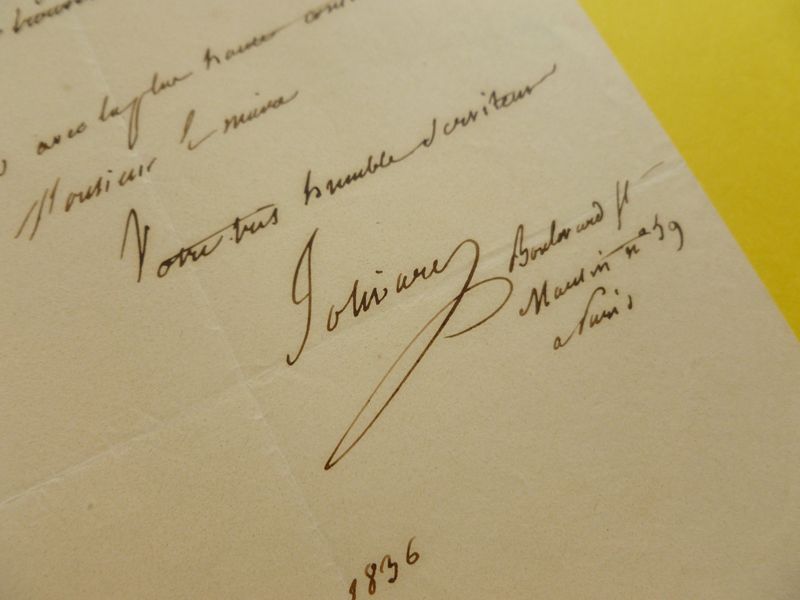 avec la plus haute
Monsieur le maire
Votre très humble serviteur
Jolivard
Boulevard St
Martin nº 59
a Paris
1836